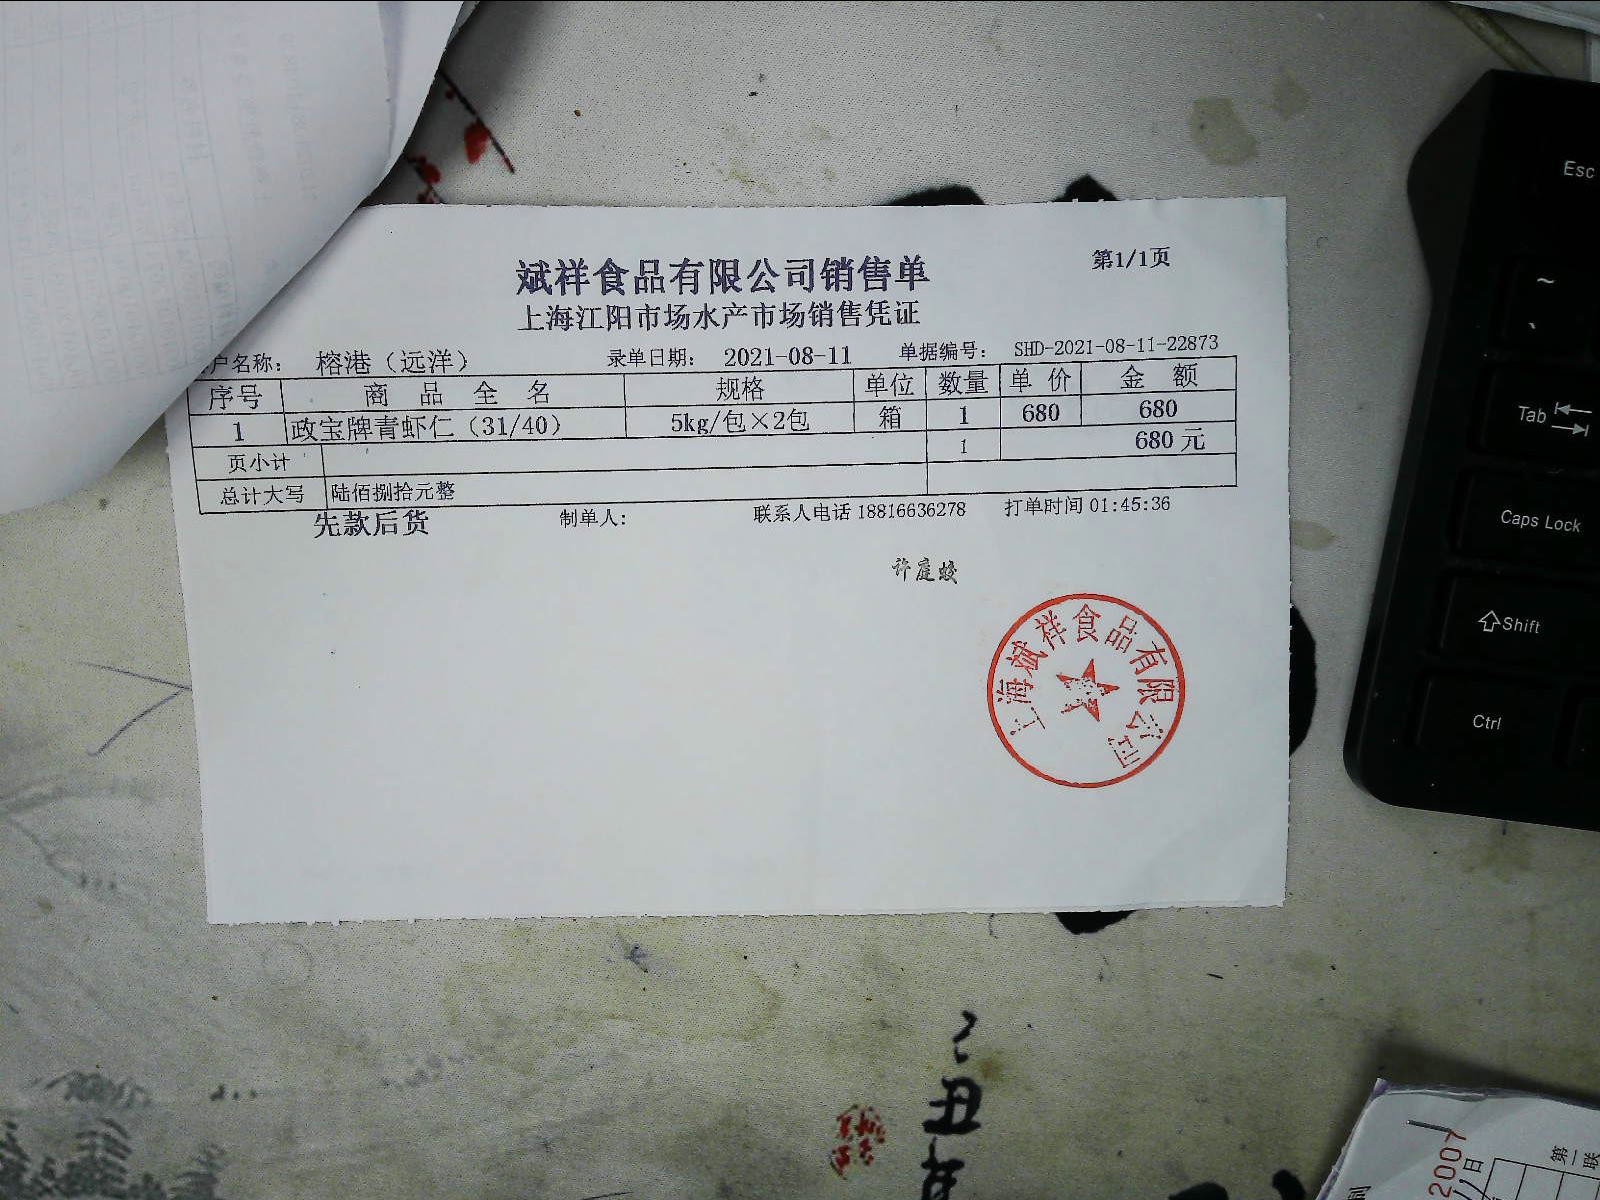 斌祥食品有限公司销售单
第1/1页
上海江阳市场水产市场销售凭证
户名称： 榕港（远洋） 录单日期： 2021-08-11 单据编号： SHD-2021-08-11-22873
序号 商品全名 规格 单位 数量 单价 金额
1 政宝牌青虾仁（31/40） 5kg/包×2包 箱 1 680 680
页小计 1 680元
总计大写 陆佰捌拾元整
先款后货 制单人： 联系人电话 18816636278 打单时间 01:45:36
许庭蛟
上海斌祥食品有限公司
Esc
~
Tab
Caps Lock
Shift
Ctrl
丑
2007
日
第一联